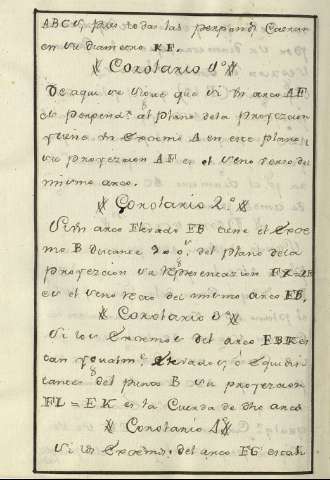 ABCD, pues todas las perpend. Caeran
en su diametro KF.
Corolario 1º
De aqui se sigue que si un arco AF
es perpend.r al plano de la proyeccion
y tiene un extremo A en este plano,
su proyeccion AF es el seno verso del
mismo arco.
Corolario 2º
Si un arco Elevado EB tiene el extre
mo B distante 90º del plano de la
proyeccion su representacion
es el seno recto del mismo arco EB.
Corolario 3º
Si los extremos del arco EBK es
tan igualm.te Elevados, ó equidis
tantes del punto B su proyeccion
FL = EK es la Cuerda de dho arco
Corolario 4º
Si un extremo del arco EG està